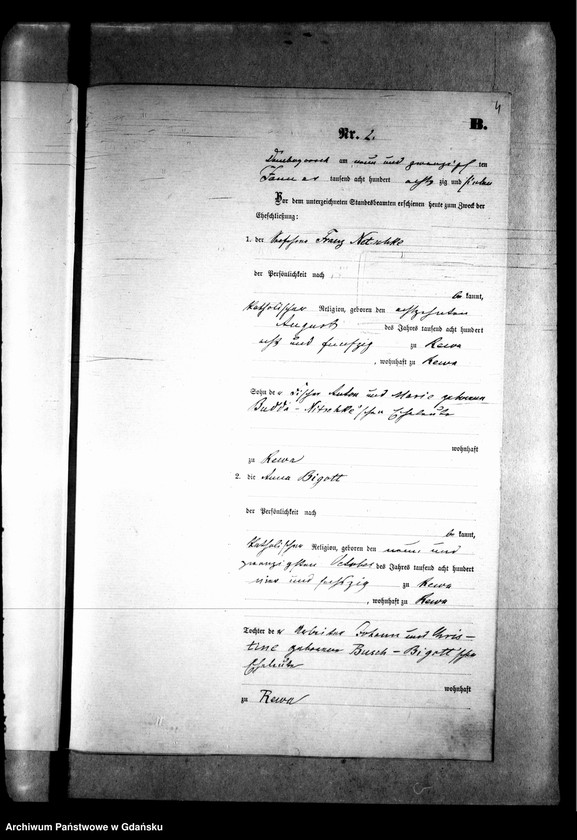 4
B.
Nr. 2.
am neun und zwanzigsten
Januar tausend acht hundert achtzig und sieben
Vor dem unterzeichneten Standesbeamten erschienen heute zum Zweck der
Eheschließung:
1. der Franz Nitschke
der Persönlichkeit nach
be kannt,
katholischer Religion, geboren den achtzehnten
August des Jahres tausend acht hundert
acht und fünfzig zu Rewa
, wohnhaft zu Rewa
Sohn der Fischer Anton und Marie geborene
Budda - Nitschke'schen Eheleute
wohnhaft
zu Rewa
2. die Anna Bigott
der Persönlichkeit nach
be kannt,
katholischer Religion, geboren den neun und
zwanzigsten October des Jahres tausend acht hundert
vier und sechszig zu Rewa
, wohnhaft zu Rewa
Tochter der Arbeiter Johann und Chris-
tine geborene Busch - Bigott'schen
Eheleute
wohnhaft
zu Rewa
Archiwum Państwowe w Gdańsku